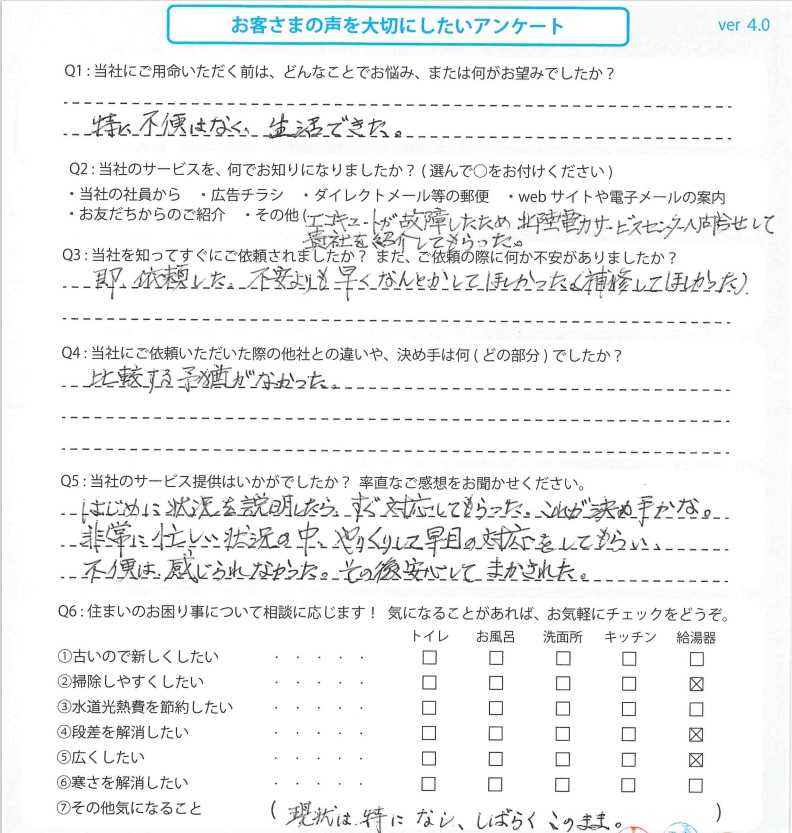 お客さまの声を大切にしたいアンケート
ver 4.0
Q1：当社にご用命いただく前は、どんなことでお悩み、または何がお望みでしたか？
特に不便はなく、生活できた。
Q2：当社のサービスを、何でお知りになりましたか？（選んで○をお付けください）
・当社の社員から ・広告チラシ ・ダイレクトメール等の郵便 ・webサイトや電子メールの案内
・お友だちからのご紹介 ・その他（エコキュートが故障したため 北陸電力サービスセンターへ問合せして
貴社を紹介してもらった。
Q3：当社を知ってすぐにご依頼されましたか？ また、ご依頼の際に何か不安がありましたか？
即、依頼した。不安よりも早くなんとかしてほしかった（補修してほしかった）.
Q4：当社にご依頼いただいた際の他社との違いや、決め手は何（どの部分）でしたか？
比較する予猶がなかった。
Q5：当社のサービス提供はいかがでしたか？ 率直なご感想をお聞かせください。
はじめに状況を説明したら、すぐ対応してもらった。これが決め手かな。
非常に忙しい状況の中、やりくりして早目の対応をしてもらい、
不便は、感じられなかった。その後安心してまかされた。
Q6：住まいのお困り事について相談に応じます！ 気になることがあれば、お気軽にチェックをどうぞ。
トイレ お風呂 洗面所 キッチン 給湯器
①古いので新しくしたい ・・・・・ □ □ □ □ □
②掃除しやすくしたい ・・・・・ □ □ □ □ ☒
③水道光熱費を節約したい ・・・・・ □ □ □ □ □
④段差を解消したい ・・・・・ □ □ □ □ ☒
⑤広くしたい ・・・・・ □ □ □ □ ☒
⑥寒さを解消したい ・・・・・ □ □ □ □ □
⑦その他気になること （現状は、特になし、しばらくこのまま。）